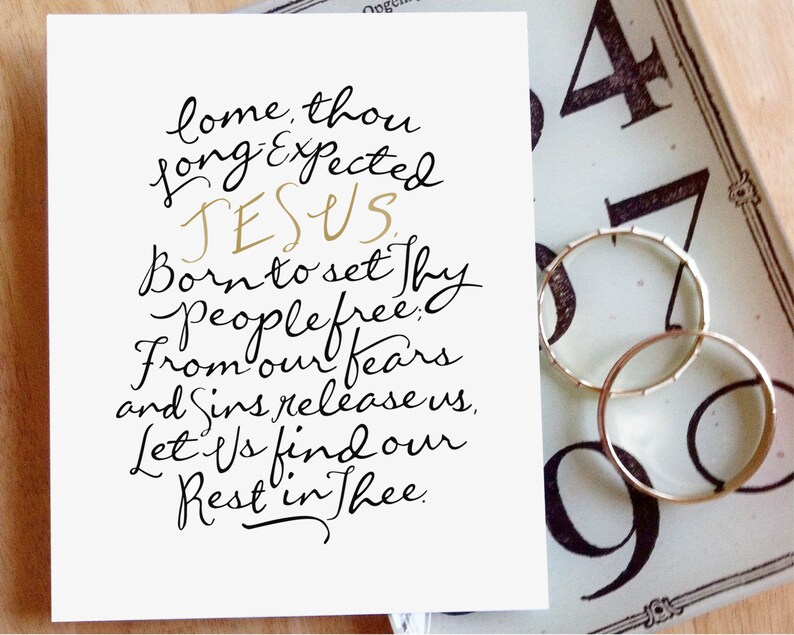 Come, thou
Long-Expected
JESUS,
Born to set Thy
People free;
From our fears
and Sins release us,
Let Us find our
Rest in Thee.
4
7
9